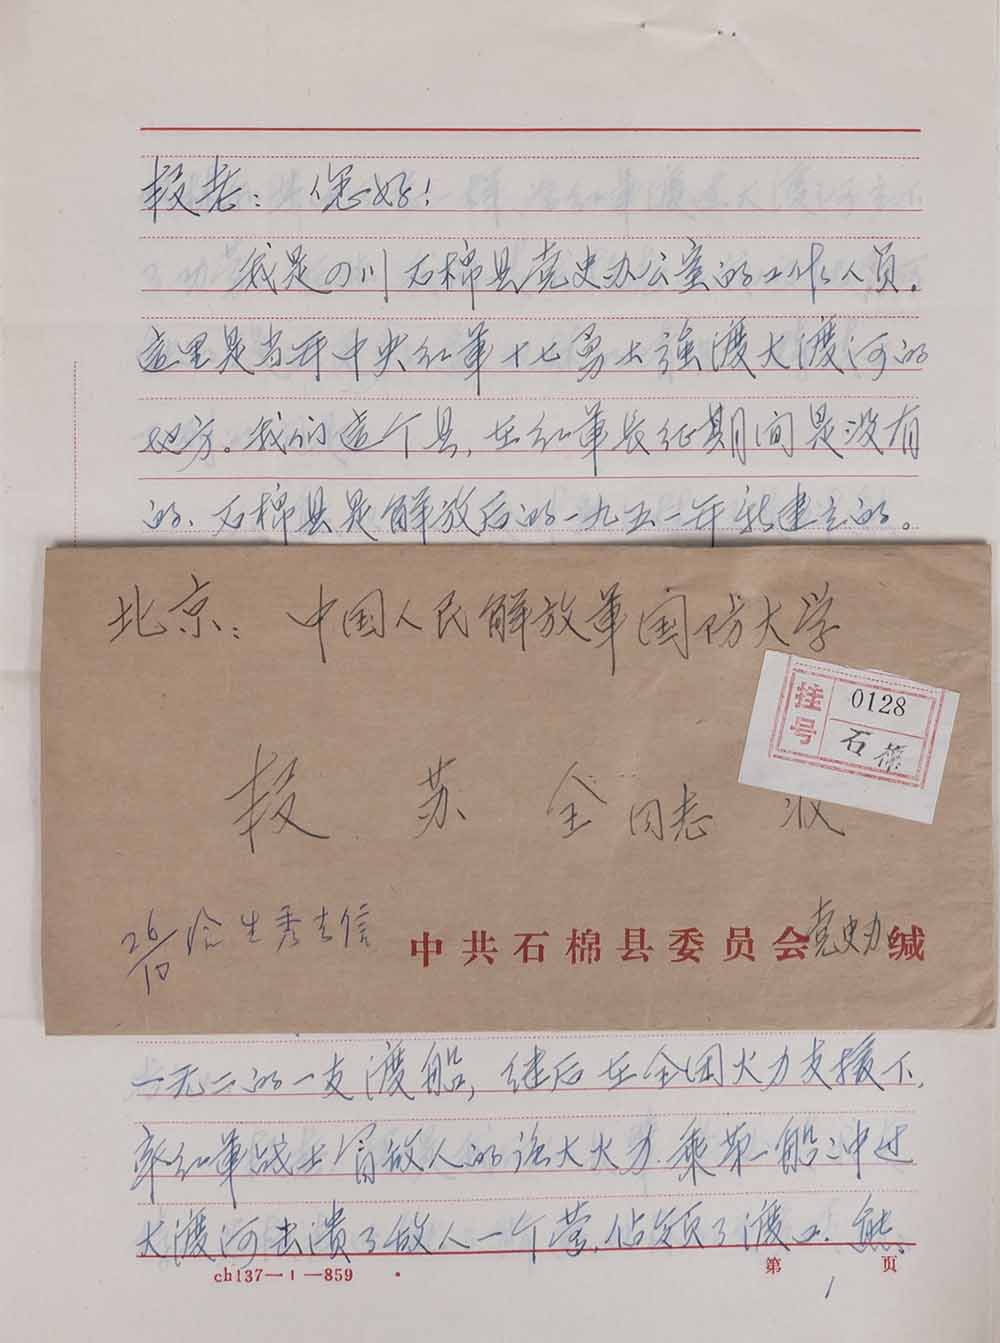 投老：您好！
我是四川石棉县党史办公室的工作人员。
这里是当年中央红军十七勇士强渡大渡河的
地方。我们这个县，在红军长征期间是没有
的、石棉县是解放后的一九五一年新建立的。
北京：中国人民解放军国防大学
挂号 0128
石棉
苏全同志 收
26/10
生秀去信
中共石棉县委员会党史办缄
一无二的一支渡船，继后在全团火力支援下，
率红军战士冒敌人的强大火力、乘第一船冲过
大渡河击溃了敌人一个营、佔领了渡口。能、
ch137—1—859
第 1 页